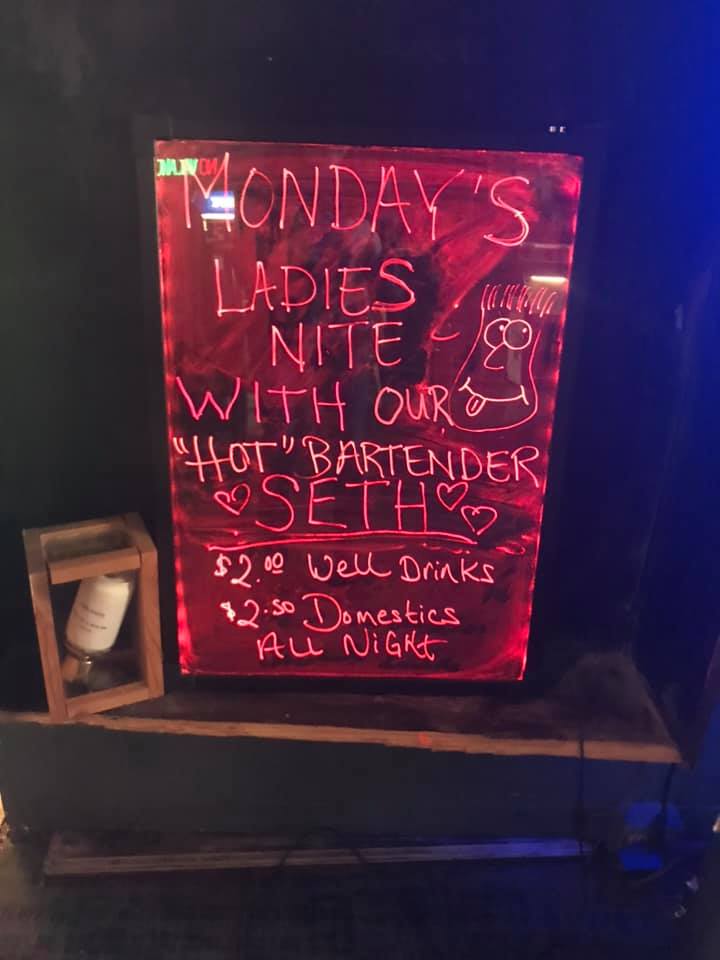 MONDAY'S
LADIES
NITE -
WITH OUR
"HOT" BARTENDER
SETH
$2.00 Well Drinks
$2.50 Domestics
All Night